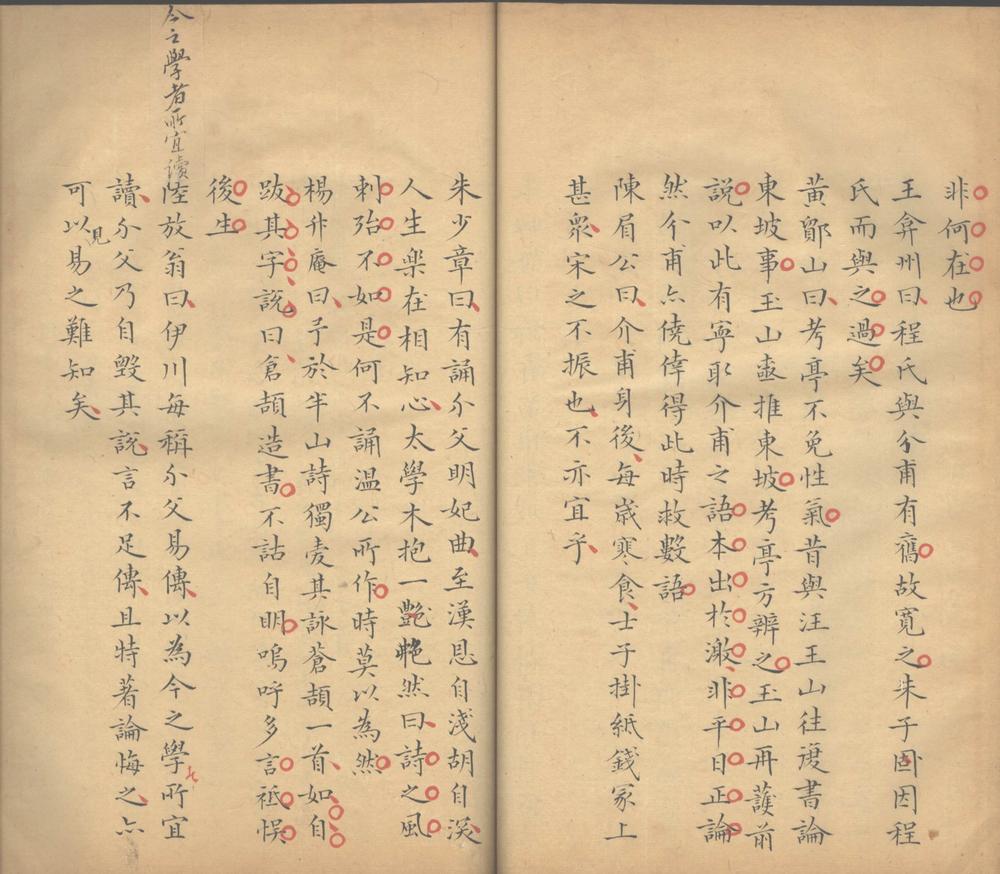 非何在也
王弇州曰程氏與介甫有舊故寬之朱子固因程
氏而與之過矣
黃鄮山曰考亭不免性氣昔與汪玉山往復書論
東坡事玉山亟推東坡考亭方辨之玉山再護前
說以此有寧取介甫之語本出於激非平日正論
然介甫亦僥倖得此時救數語
陳眉公曰介甫身後每歲寒食士子掛紙錢冢上
甚衆宋之不振也不亦宜乎
朱少章曰有誦介父明妃曲至漢恩自淺胡自深
人生樂在相知心太學木抱一艴艴然曰詩之風
刺殆不如是何不誦溫公所作時莫以為然
楊升庵曰予於半山詩獨愛其詠蒼頡一首如自
跋其字說曰倉頡造書不詁自明嗚呼多言祗悞
後生
今之學者所宜讀
陸放翁曰伊川每稱介父易傳以為今之學所宜
讀介父乃自毀其說言不足傳且特著論悔之亦
可以見易之難知矣